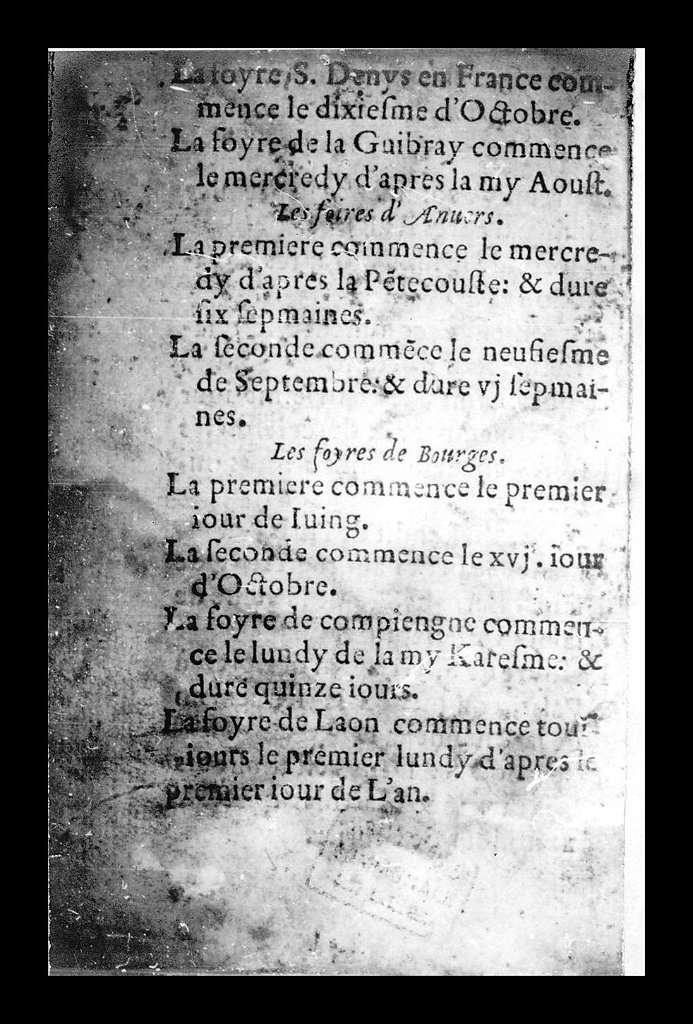 La foyre S. Denys en France com-
mence le dixieſme d'Octobre.
La foyre de la Guibray commence
le mercredy d'apres la my Aouſt.
Les foires d' Anuers.
La premiere commence le mercre-
dy d'apres la Pẽtecouſte: & dure
ſix ſepmaines.
La ſeconde commẽce le neufieſme
de Septembre: & dure vj ſepmai-
nes.
Les foyres de Bourges.
La premiere commence le premier
iour de Iuing.
La ſeconde commence le xvj. iour
d'Octobre.
La foyre de compiengne commen-
ce le lundy de la my Kareſme: &
dure quinze iours.
La foyre de Laon commence touſ-
iours le premier lundy d'apres le
premier iour de L'an.